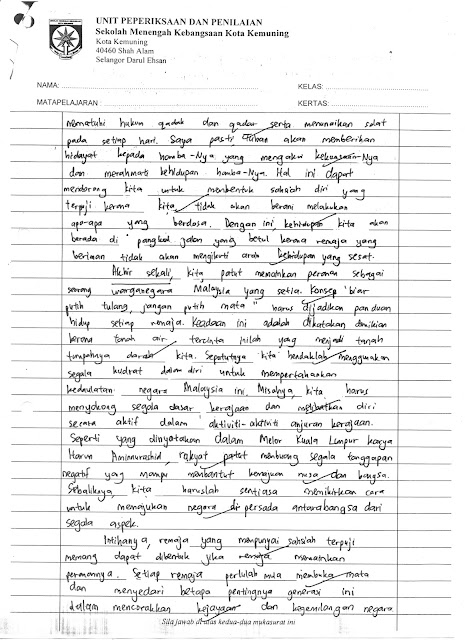 UNIT PEPERIKSAAN DAN PENILAIAN
Sekolah Menengah Kebangsaan Kota Kemuning
Kota Kemuning
40460 Shah Alam
Selangor Darul Ehsan
NAMA: KELAS:
MATAPELAJARAN : KERTAS:
mematuhi hukum qadak dan qadar serta menunaikan solat
pada setiap hari. Saya pasti Tuhan akan memberikan
hidayat kepada hamba-Nya yang mengakui kekuasaan-Nya
dan merahmati kehidupan hamba-Nya. Hal ini dapat
mendorong kita untuk membentuk sahsiah diri yang
terpuji kerana kita tidak akan berani melakukan
apa-apa yang berdosa. Dengan ini, kehidupan kita akan
berada di pangkal jalan yang betul kerana remaja yang
beriman tidak akan mengikuti arah kehidupan yang sesat.
Akhir sekali, kita patut memainkan peranan sebagai
seorang warganegara Malaysia yang setia. Konsep 'biar
putih tulang, jangan putih mata" harus dijadikan panduan
hidup setiap remaja. Keadaan ini adalah dikatakan demikian
kerana tanah air tercinta inilah yang menjadi tanah
tumpahnya darah kita. Sepututnya kita hendaklah menggunakan
segala kudrat dalam diri untuk mempertahankan
kedaulatan negara Malaysia ini. Misalnya, kita harus
menyokong segala dasar kerajaan dan melibatkan diri
secara aktif dalam aktiviti-aktiviti anjuran kerajaan.
Seperti yang dinyatakan dalam Melor Kuala Lumpur karya
Harun Aminurrashid, rakyat patut membuang segala tanggapan
negatif yang mampu membantut kemajuan nusa dan bangsa.
Sebaliknya, kita haruslah sentiasa memikirkan cara
untuk memajukan negara di persada antarabangsa dari
segala aspek.
Intihanya, remaja yang mempunyai sahsiah terpuji
memang dapat dibentuk jika remaja memainkan
peranannya. Setiap remaja perlulah mula membuka mata
dan menyedari betapa pentingnya generasi ini
dalam mencorakkan kejayaan dan kegemilangan negara.
Sila jawab di atas kedua-dua mukasurat ini